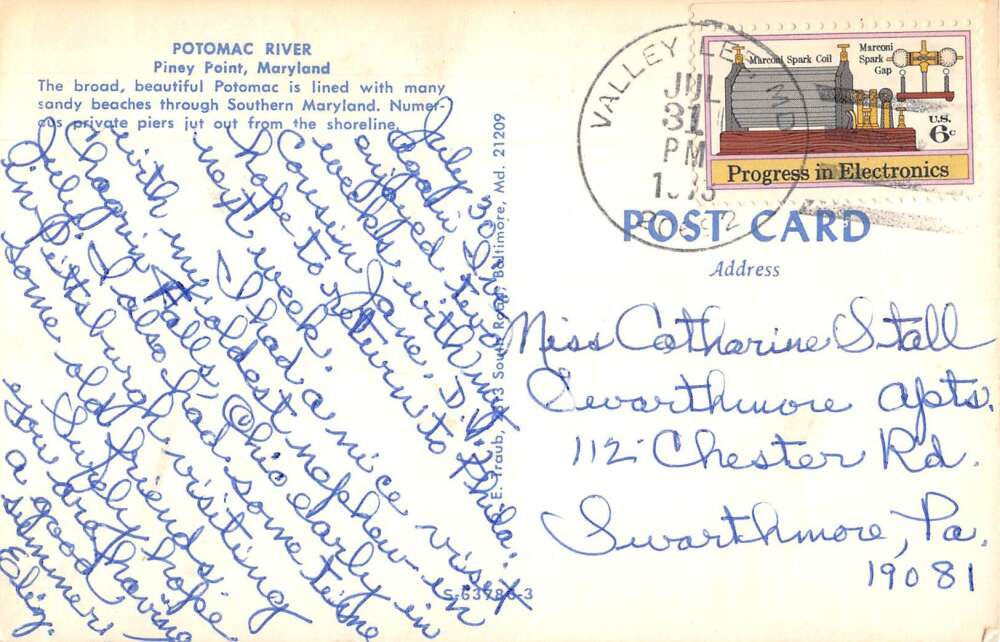 POTOMAC RIVER
Piney Point, Maryland
The broad, beautiful Potomac is lined with many
sandy beaches through Southern Maryland. Numer-
ous private piers jut out from the shoreline.
July 30.
Again I've
enjoyed two
weeks with my
Cousin Jane. D.V. I
hope to return to Phila.
next week. I had a nice visit
with my oldest nephew in
Chagrin Falls, Ohio early in
July. I also had some time
in Pittsburgh visiting
some old friends.
Surely hope
you are having
a good
summer.
Eliz.
E. Traub, South Road, Baltimore, Md. 21209
S-63786-3
VALLEY LEE MD
JUL
31
PM
20692
Marconi Spark Coil
Marconi
Spark
Gap
U.S.
6c
Progress in Electronics
POST CARD
Address
Miss Catharine Stall
Swarthmore Apts.
112 Chester Rd.
Swarthmore, Pa.
19081